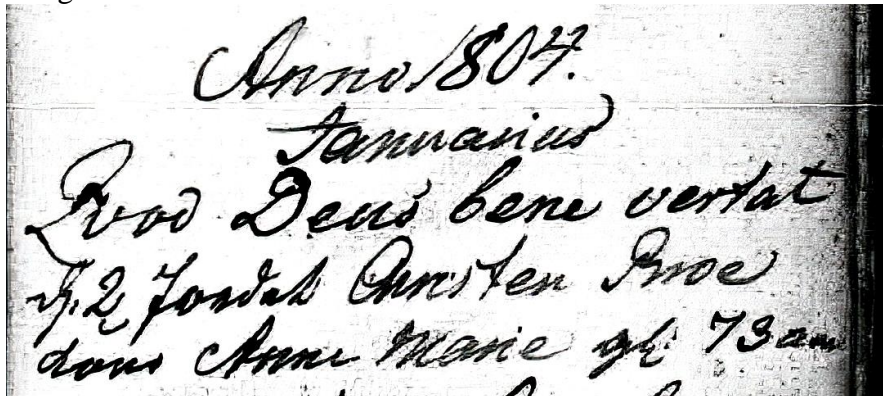 Anno 1804.
Januarius
Qvod Deus bene vertat
d. 2 Jordet Christen
Anne Marie gl. 73